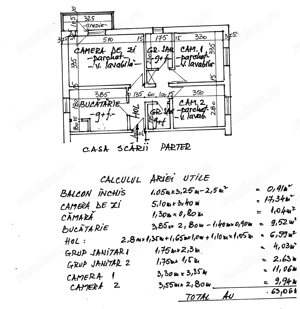 325
510 15 15 320
CAMERA DE ZI
-parchet-
v. lavabile
GR. SAN
g+f
CAM. 1
-parchet
v. lavabil
335
385 135 60 100 15 350
BUCĂTĂRIE
-g+f-
HOL
CAM. 2
-parchet
v. lavab.
CASA SCĂRII PARTER
CALCULUL ARIEI UTILE
BALCON ÎNCHIS 1,05m×3,25m-2,5m² = 0,91m²
CAMERA DE ZI 5,10m×3,40m = 17,34m²
CĂMARĂ 1,30m×0,80m = 1,04m²
BUCĂTĂRIE 3,85m× 2,80m-1,40m×0,90m = 9,52m²
HOL: 2,8m×1,35m+1,65m×1,0m+1,10m×1,05m = 6,59m²
GRUP SANITAR 1 1,75m×2,3m = 4,03m²
GRUP SANITAR 2 1,75m×1,5m = 2,63m
CAMERA 1 3,30m×3,35m = 11,06m
CAMERA 2 3,55m×2,80m = 9,94m²
TOTAL AU 63,06m